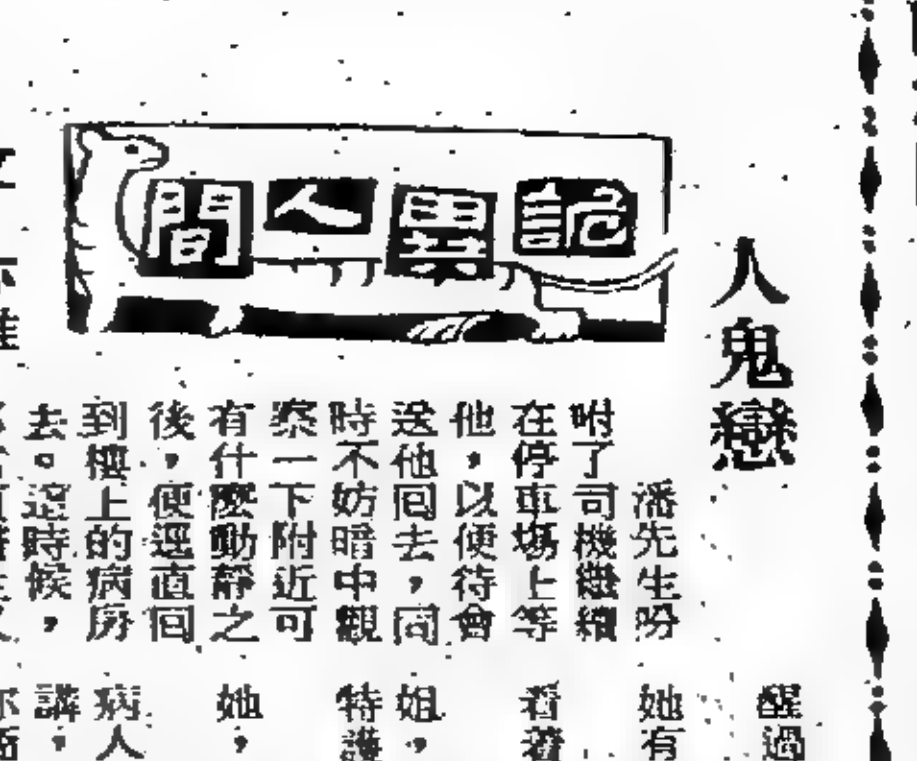 詭異人間
人鬼戀
潘先生吩
咐了司機繼續
在停車塲上等
他，以便待會
送他囘去，同
時不妨暗中觀
察一下附近可
有什麽動靜之
後，便逕直囘
到樓上的病房
去。這時候，
醒過
她有
看着
姐，
特護
她，
病人
講，